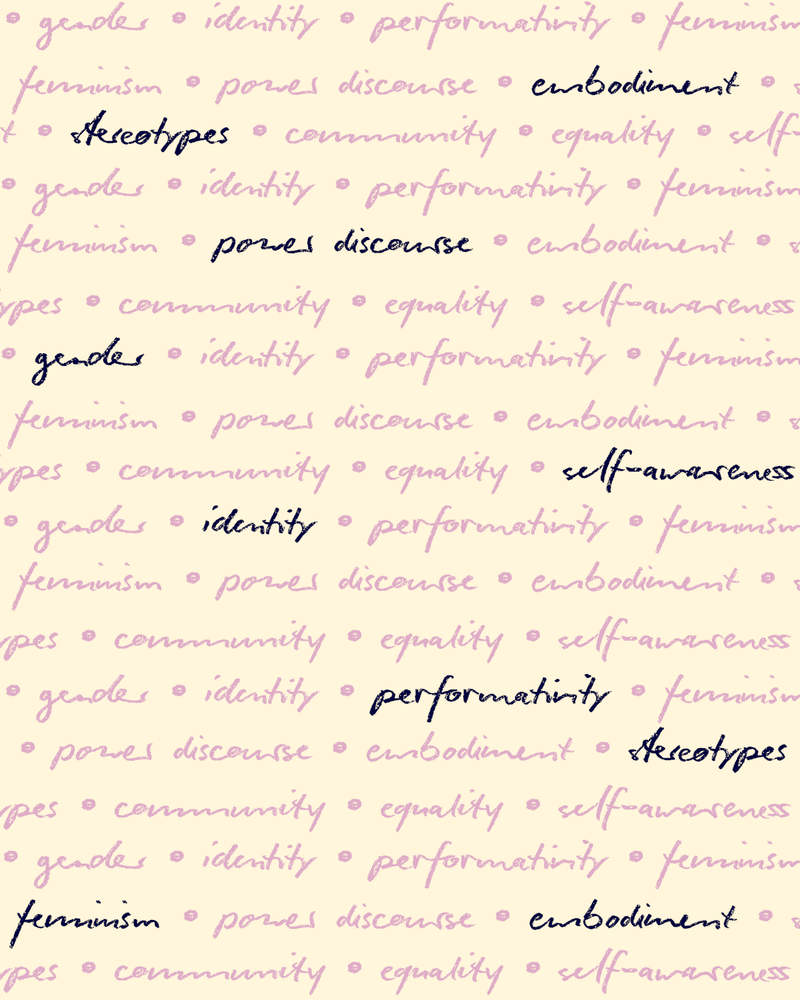 • gender • identity • performativity • feminism
feminism • power discourse • embodiment •
t • stereotypes • community • equality • self-
• gender • identity • performativity • feminism
feminism • power discourse • embodiment •
ypes • community • equality • self-awareness
• gender • identity • performativity • feminism
feminism • power discourse • embodiment •
ypes • community • equality • self-awareness
• gender • identity • performativity • feminism
feminism • power discourse • embodiment •
ypes • community • equality • self-awareness
• gender • identity • performativity • feminism
• power discourse • embodiment • stereotypes
ypes • community • equality • self-awareness
• gender • identity • performativity • feminism
feminism • power discourse • embodiment •
ypes • community • equality • self-awareness